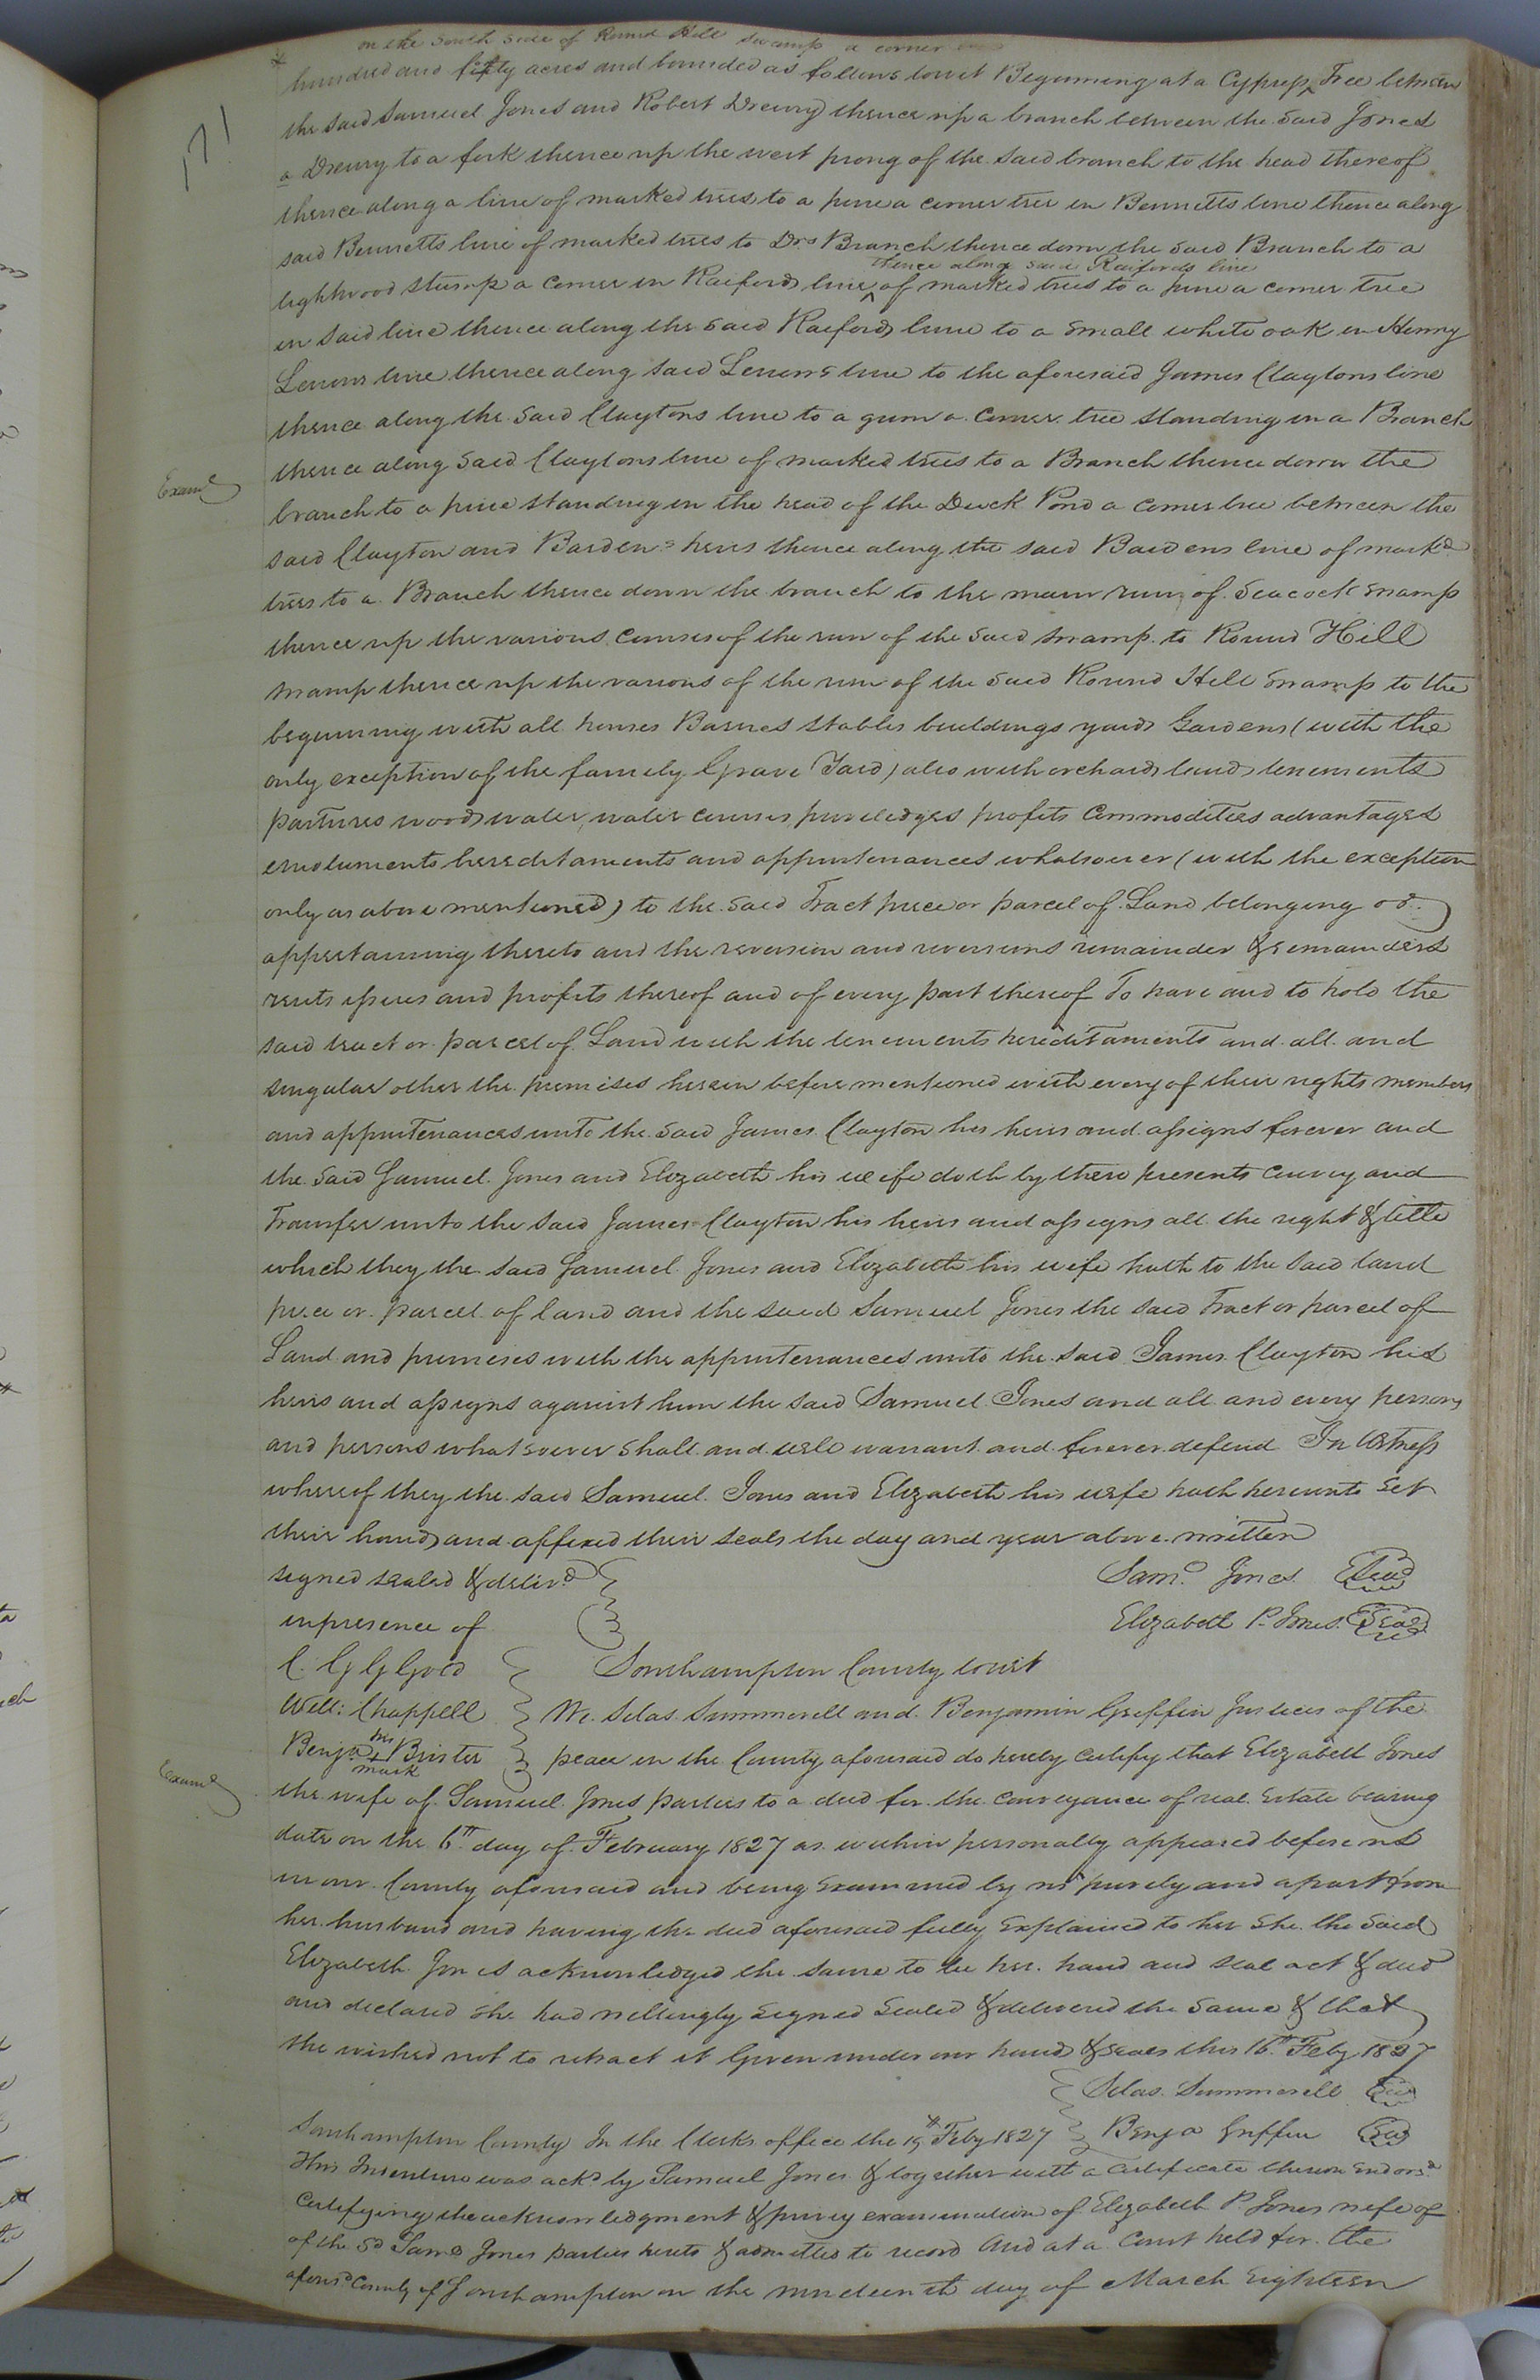 171
on the South side of Round Hill Swamp a corner tree
hundred and fifty acres and bounded as follows towit Beginning at a Cypress Tree between
the said Samuel Jones and Robert Drewry thence up a branch between the said Jones
a Drewry to a fork thence up the west prong of the said branch to the head thereof
thence along a line of marked trees to a pine a corner tree in Bennetts line thence along
said Bennetts line of marked trees to Drs Branch thence down the said Branch to a
thence along said Raifords line
lightwood stump a corner in Raifords line of marked trees to a pine a corner tree
in said line thence along the said Raifords line to a small white oak in Henry
line thence along said line to the aforesaid James Claytons line
thence along the said Claytons line to a gum a corner tree standing in a Branch
thence along said Claytons line of marked trees to a Branch thence down the
Examd
branch to a pine standing in the head of the Duck Pond a corner tree between the
said Clayton and Barden's heirs thence along the said Bardens line of markd
trees to a Branch thence down the branch to the main run of Seacock Swamp
thence up the various courses of the run of the said swamp to Round Hill
swamp thence up the various of the run of the said Round Hill Swamp to the
beginning with all houses Barnes stables buildings yards Gardens (with the
only exception of the family Grave Yard) also with orchards lands tenements
pastures woods water, water courses priviledges profits commodities advantages
emoluments hereditaments and appurtenances whatsoever (with the exception
only as above mentioned) to the said Tract piece or parcel of Land belonging or
appertaining thereto and the reversion and reversions remainder & remainders
rents issues and profits thereof and of every part thereof To have and to hold the
said tract or parcel of Land with the tenements hereditaments and all and
singular other the premises herein before mentioned with every of their rights members
and appurtenances unto the said James Clayton his heirs and assigns forever and
the said Samuel Jones and Elizabeth his wife doth by these presents convey and
Transfer unto the said James Clayton his heirs and assigns all the right & title
which they the said Samuel Jones and Elizabeth his wife hath to the said land
piece or parcel of land and the said Samuel Jones the said Tract or parcel of
Land and premises with the appurtenances unto the said James Clayton his
heirs and assigns against him the said Samuel Jones and all and every person
and persons whatsoever shall and will warrant and forever defend In Witness
whereof they the said Samuel Jones and Elizabeth his wife hath hereunto set
their hands and affixed their seals the day and year above written
signed sealed & delivd Saml Jones Seal
in presence of Elizabeth P. Jones Seal
C. G G Good Southampton County towit
Will: Chappell We Silas Summerell and Benjamin Griffin Justices of the
his
Benja + Brister peace in the County aforesaid do hereby certify that Elizabeth Jones
mark
Examd
the wife of Samuel Jones parties to a deed for the conveyance of real Estate bearing
date on the 6th day of February 1827 as within personally appeared before us
in our County aforesaid and being Examined by us purely and apart from
her husband and having the deed aforesaid fully Explained to her she the said
Elizabeth Jones acknowledged the same to be her hand and seal act & deed
and declared she had willingly signed sealed & delivered the same & that
she wished not to retract it Given under our hands & seals this 16th Feby 1827
Silas Summerell Seal
Southampton County In the Clerks office the 19th Feby 1827 Benja Griffin Seal
This Indenture was ackd by Samuel Jones & together with a certificate thereon Endorsd
certifying the acknowledgment & privy examination of Elizabeth P. Jones wife of
of the sd Saml Jones parties hereto & admitted to record And at a Court held for the
aforesd County of Southampton on the nineteenth day of March Eighteen